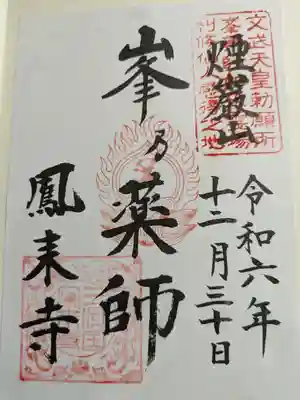 文武天皇勅願所
煙巌山
令和六年
十二月三十日
峯乃薬師
鳳来寺